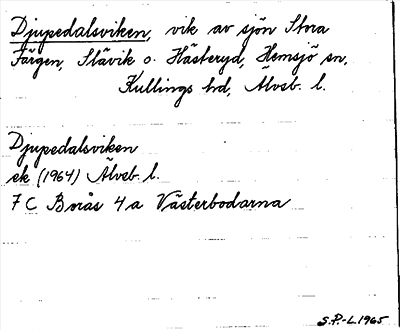 Djupedalsviken, vik av sjön Stora
Färgen, Slävik o. Hästeryd, Hemsjö sn,
Kullings hd, Älvsb. l.
Djupedalsviken
ek (1964) Älvsb. l.
7 C Borås 4 a Västerbodarna
S.P.-L. 1965